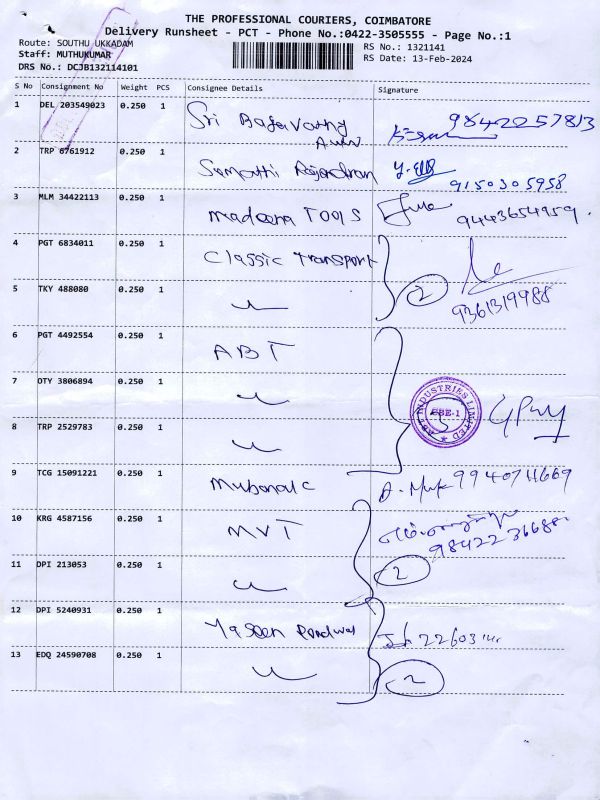 THE PROFESSIONAL COURIERS, COIMBATORE
Delivery Runsheet - PCT - Phone No.:0422-3505555 - Page No.:1
Route: SOUTHU UKKADAM
RS No.: 1321141
Staff: MUTHUKUMAR
RS Date: 13-Feb-2024
DRS No.: DCJB132114101
S No Consignment No Weight PCS Consignee Details Signature
1 DEL 203549023 0.250 1 Sri 9842257813
2 TRP 6761912 0.250 1 Sumathi Rajendran 9150305958
3 MLM 34422113 0.250 1 Madeena TOOLS 9443654959
4 PGT 6834011 0.250 1 Classic Transport
5 TKY 488080 0.250 1 2 9361319988
6 PGT 4492554 0.250 1 ABT
7 OTY 3806894 0.250 1
ABT INDUSTRIES LIMITED
CBE-1
8 TRP 2529783 0.250 1
9 TCG 15091221 0.250 1
10 KRG 4587156 0.250 1 MVT
11 DPI 213053 0.250 1 2
12 DPI 5240931 0.250 1 Yaseen
13 EDQ 24590708 0.250 1 2